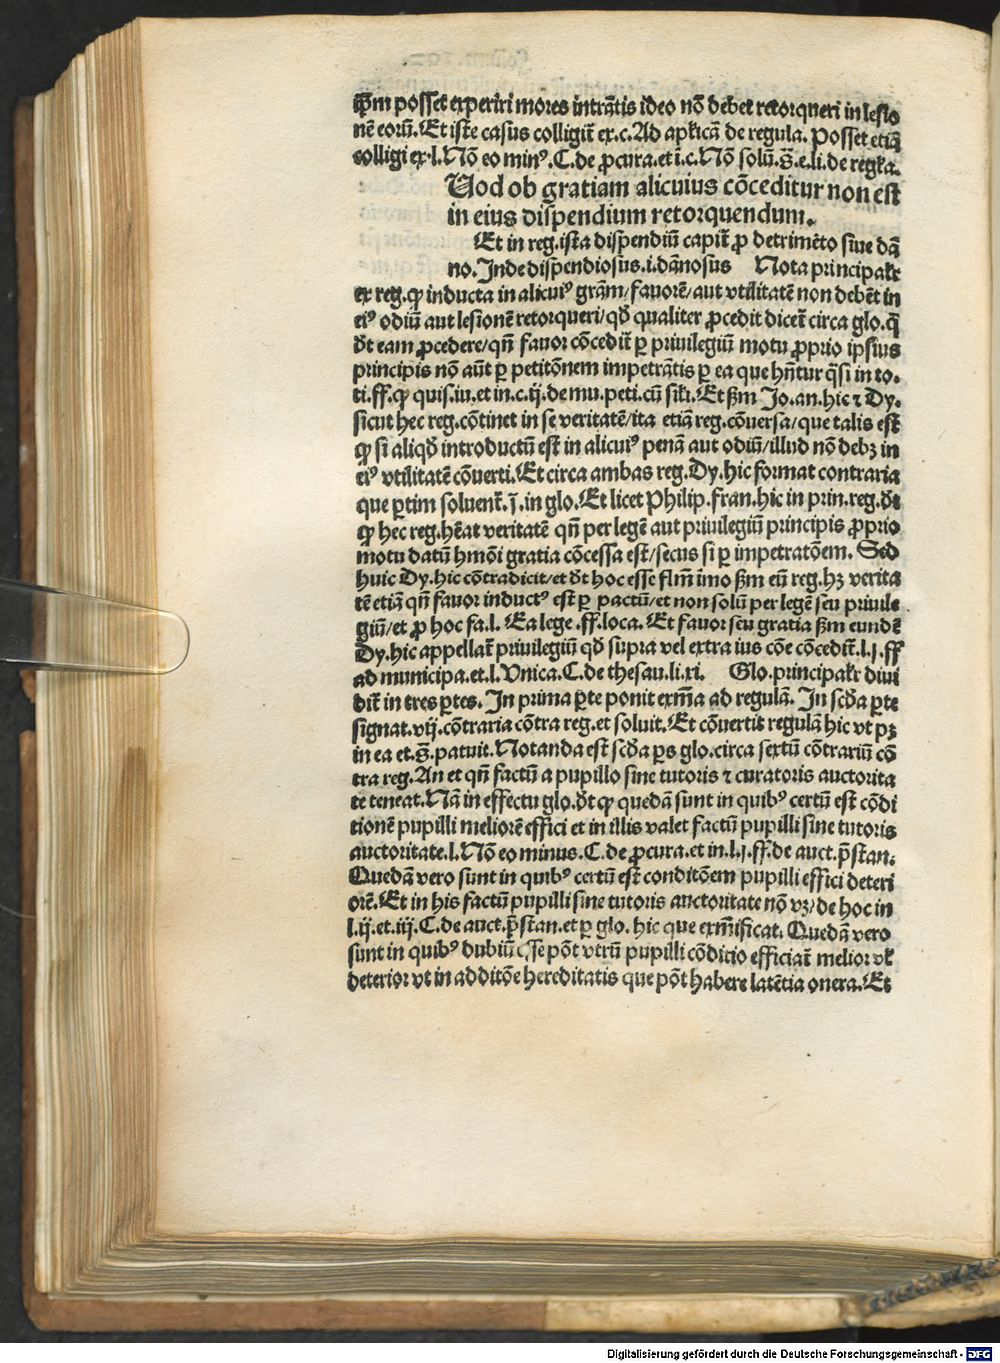 ip̄m posset experiri mores intrātis ideo nō debet retorqueri in lesio
nē eorū. Et iste casus colligit̄ ex.c. Ad apl̓icā de regula. Posset etiā
colligi ex.l. Nō eo minꝰ. C. de ꝓcura. et i.c. Nō solū. s̄. e. li. de regl̓a.
Uod ob gratiam alicuius cōceditur non est
in eius dispendium retorquendum.
Et in reg. ista dispendiū capit̄ ꝓ detrimēto siue dā
no. Inde dispendiosus .i. dānosus Nota principalr̄
ex reg. ꝙ inducta in alicuiꝰ grām/ fauorē/ aut vtilitatē non debēt in
eiꝰ odiū aut lesionē retorqueri/ qd̄ qualiter ꝓcedit dicet̄ circa glo. q̄
dt̄ eam ꝓcedere/ qn̄ fauor cōcedit̄ ꝑ priuilegiū motu ꝓprio ipsius
principis nō aūt ꝑ petitōnem impetrātis ꝑ ea que hn̄tur q̄si in to.
ti. ff. ꝙ quis. iu. et in. c. ij. de mu. peti. cū sil̓i. Et ẜm Jo. an. hic ⁊ Dy.
sicut hec reg. cōtinet in se veritatē/ ita etiā reg. cōuersa/ que talis est
ꝙ si aliqd̄ introductū est in alicuiꝰ penā aut odiū/ illud nō debꝫ in
eiꝰ vtilitatē cōuerti. Et circa ambas reg. Dy. hic format contraria
que ꝑtim soluent̄. j̄. in glo. Et licet Philip. fran. hic in prin. reg. dt̄
ꝙ hec reg. hēat veritatē qn̄ per legē aut priuilegiū principis ꝓprio
motu datū hmōi gratia cōcessa est/ secus si ꝑ impetratōem. Sed
huic Dy. hic cōtradicit/ et dt̄ hoc esse flm̄ imo ẜm eū reg. hꝫ verita
tē etiā qn̄ fauor inductꝰ est ꝑ pactū/ et non solū per legē seu priuile
giū/ et ꝓ hoc fa. l. Ea lege .ff. loca. Et fauor seu gratia ẜm eundē
Dy. hic appellat̄ priuilegiū qd̄ supra vel extra ius cōe cōcedit̄. l. j. ff
ad municipa. et. l. Vnica. C. de thesau. li. xi. Glo. principalr̄ diui
dit̄ in tres ꝑtes. In prima ꝑte ponit exm̄a ad regulā. In scd̄a ꝑte
signat. vij. cōtraria cōtra reg. et soluit. Et cōuertit regulā hic vt pꝫ
in ea et. s̄. patuit. Notanda est scd̄a ꝑs glo. circa sextū cōtrariū cō
tra reg. An et qn̄ factū a pupillo sine tutoris ⁊ curatoris auctorita
te teneat. Nā in effectu glo. dt̄ ꝙ quedā sunt in quibꝰ certū est cōdi
tionē pupilli meliorē effici et in illis valet factū pupilli sine tutoris
auctoritate. l. Nō eo minus. C. de ꝓcura. et in. l. j. ff. de auct. p̄stan.
Quedā vero sunt in quibꝰ certū est conditōem pupilli effici deteri
orē. Et in his factū pupilli sine tutoris auctoritate nō vꝫ/ de hoc in
l. ij. et. iij. C. de auct. p̄stan. et ꝑ glo. hic que exm̄ificat. Quedā vero
sunt in quibꝰ dubiū esse pōt vtrū pupilli cōditio efficiat̄ melior vl̓
deterior vt in additōe hereditatis que pōt habere latētia onera. Et
Digitalisierung gefördert durch die Deutsche Forschungsgemeinschaft - DFG